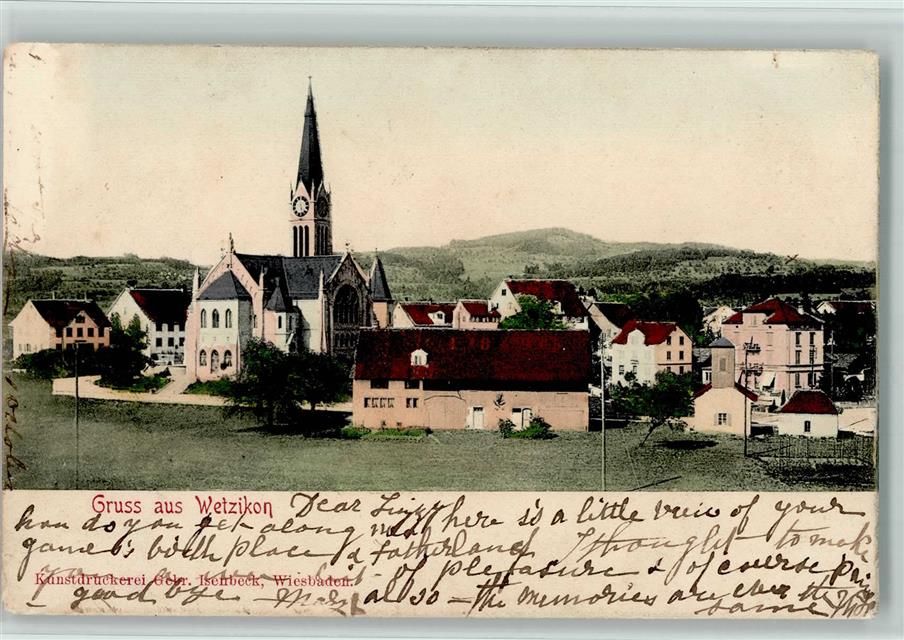 Gruss aus Wetzikon
Dear
how do you get along well here is a little view of your
game's birth place & fatherland I thought to make
of pleasure & of course
Kunstdruckerei Gebr. Isenbeck, Wiesbaden.
good bye also the memories are ever the
same